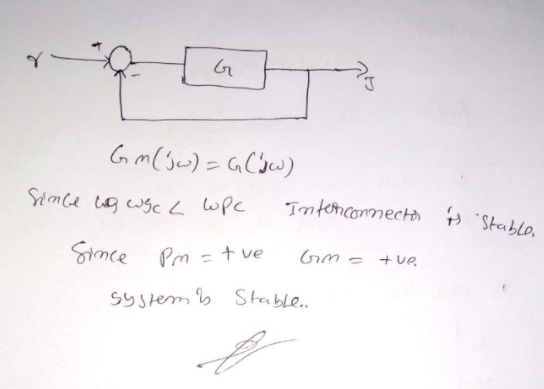 r + - G y
Gm(jω) = G(jω)
Since ωgc < ωpc Interconnection is Stable.
Since Pm = +ve Gm = +ve.
system is Stable..